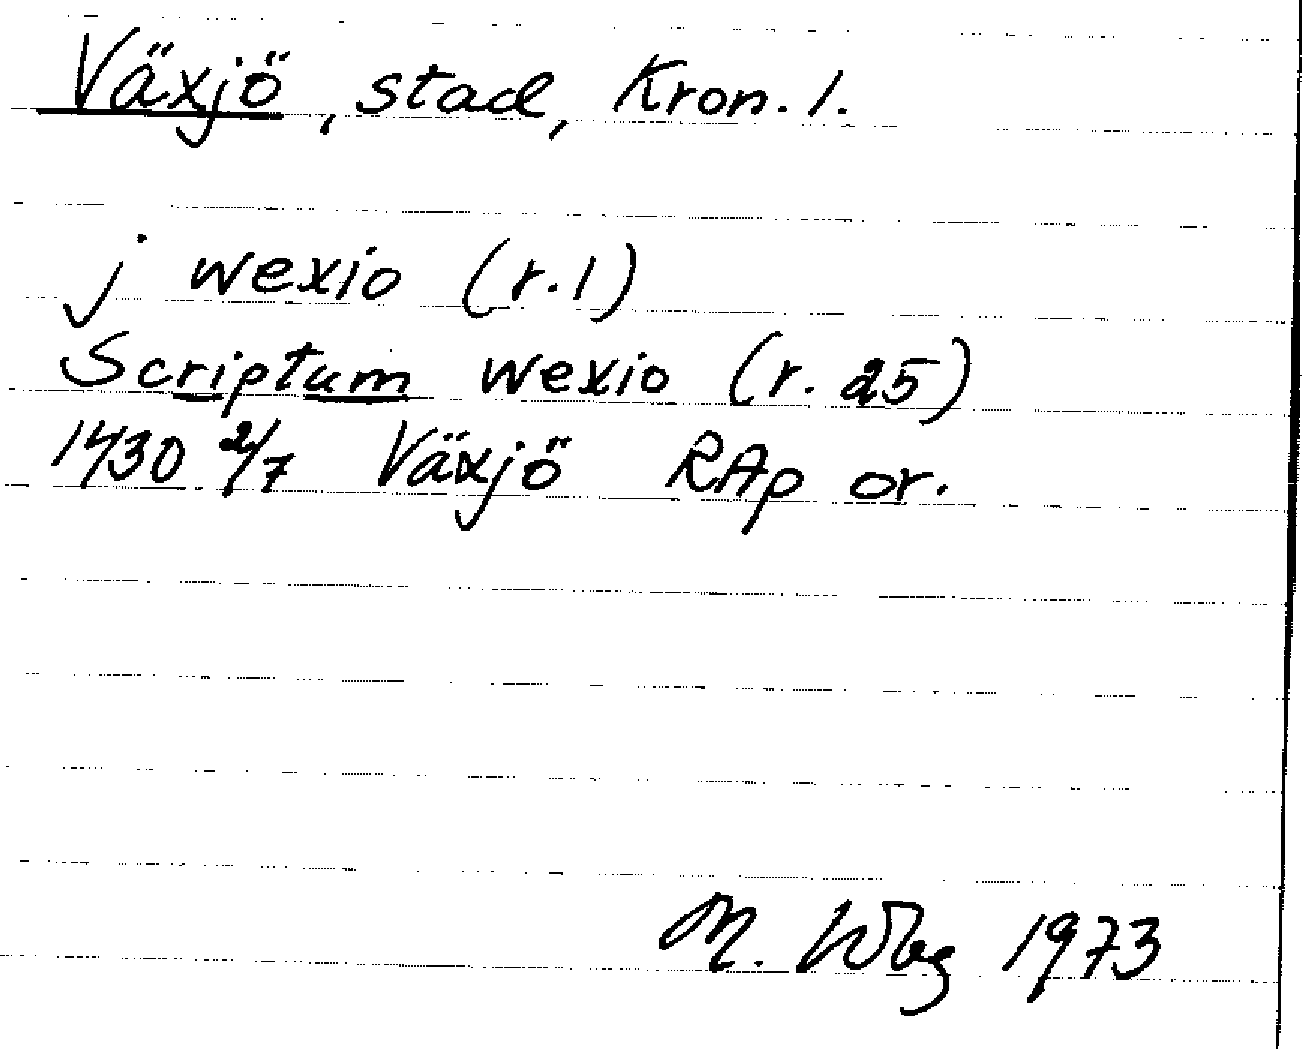 Växjö, stad, Kron. l.
j wexio (r.1)
Scriptum wexio (r. 25)
1430 2/7 Växjö RAp or.
M. Wbg 1973